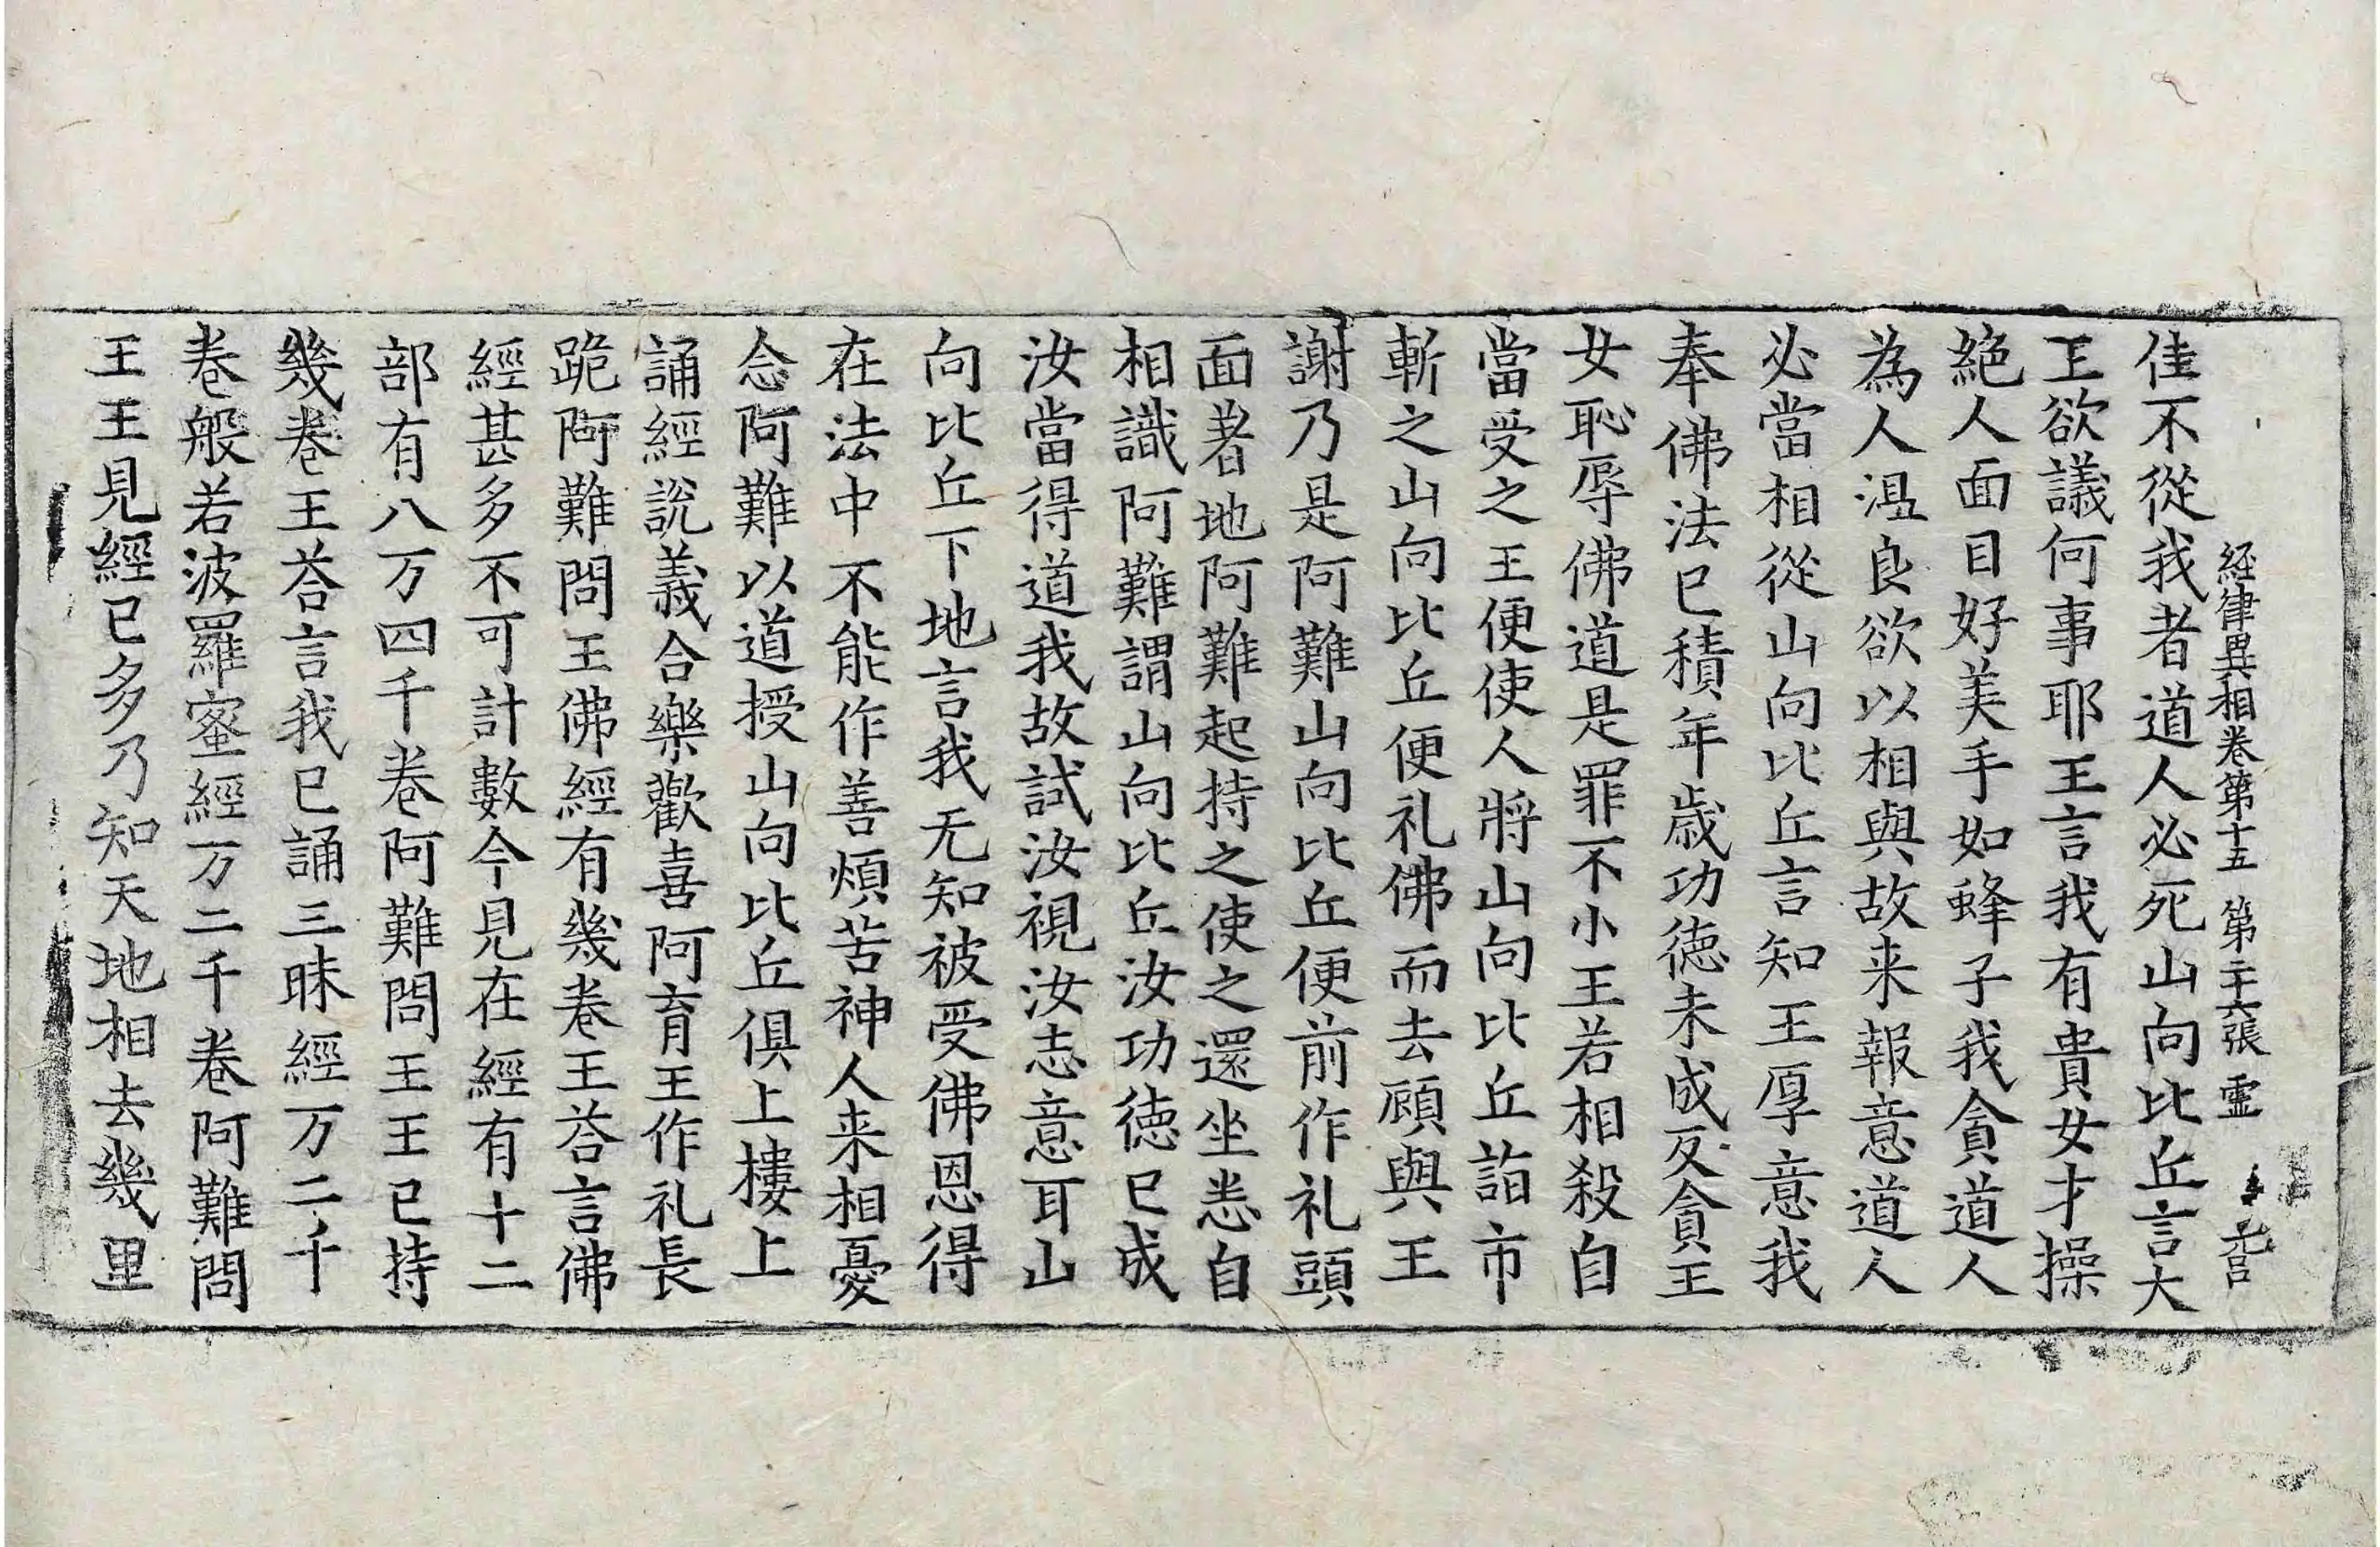 経律異相卷第十五 第二十六張 霊
佳不從我者道人必死山向比丘言大
王欲議何事耶王言我有貴女才操
絶人面目好美手如蜂子我貪道人
為人温良欲以相與故来報意道人
必當相從山向比丘言知王厚意我
奉佛法已積年歳功徳未成反貪王
女恥辱佛道是罪不小王若相殺自
當受之王便使人將山向比丘詣市
斬之山向比丘便礼佛而去顧與王
謝乃是阿難山向比丘便前作礼頭
面著地阿難起持之使之還坐恙自
相識阿難謂山向比丘汝功徳已成
汝當得道我故試汝視汝志意耳山
向比丘下地言我无知被受佛恩得
在法中不能作善煩苦神人来相憂
念阿難以道授山向比丘俱上樓上
誦經説義合樂歡喜阿育王作礼長
跪阿難問王佛經有幾巻王荅言佛
經甚多不可計數今見在經有十二
部有八万四千巻阿難問王王已持
幾巻王荅言我已誦三昧經万二千
巻般若波羅蜜經万二千巻阿難問
王王見經已多乃知天地相去幾里